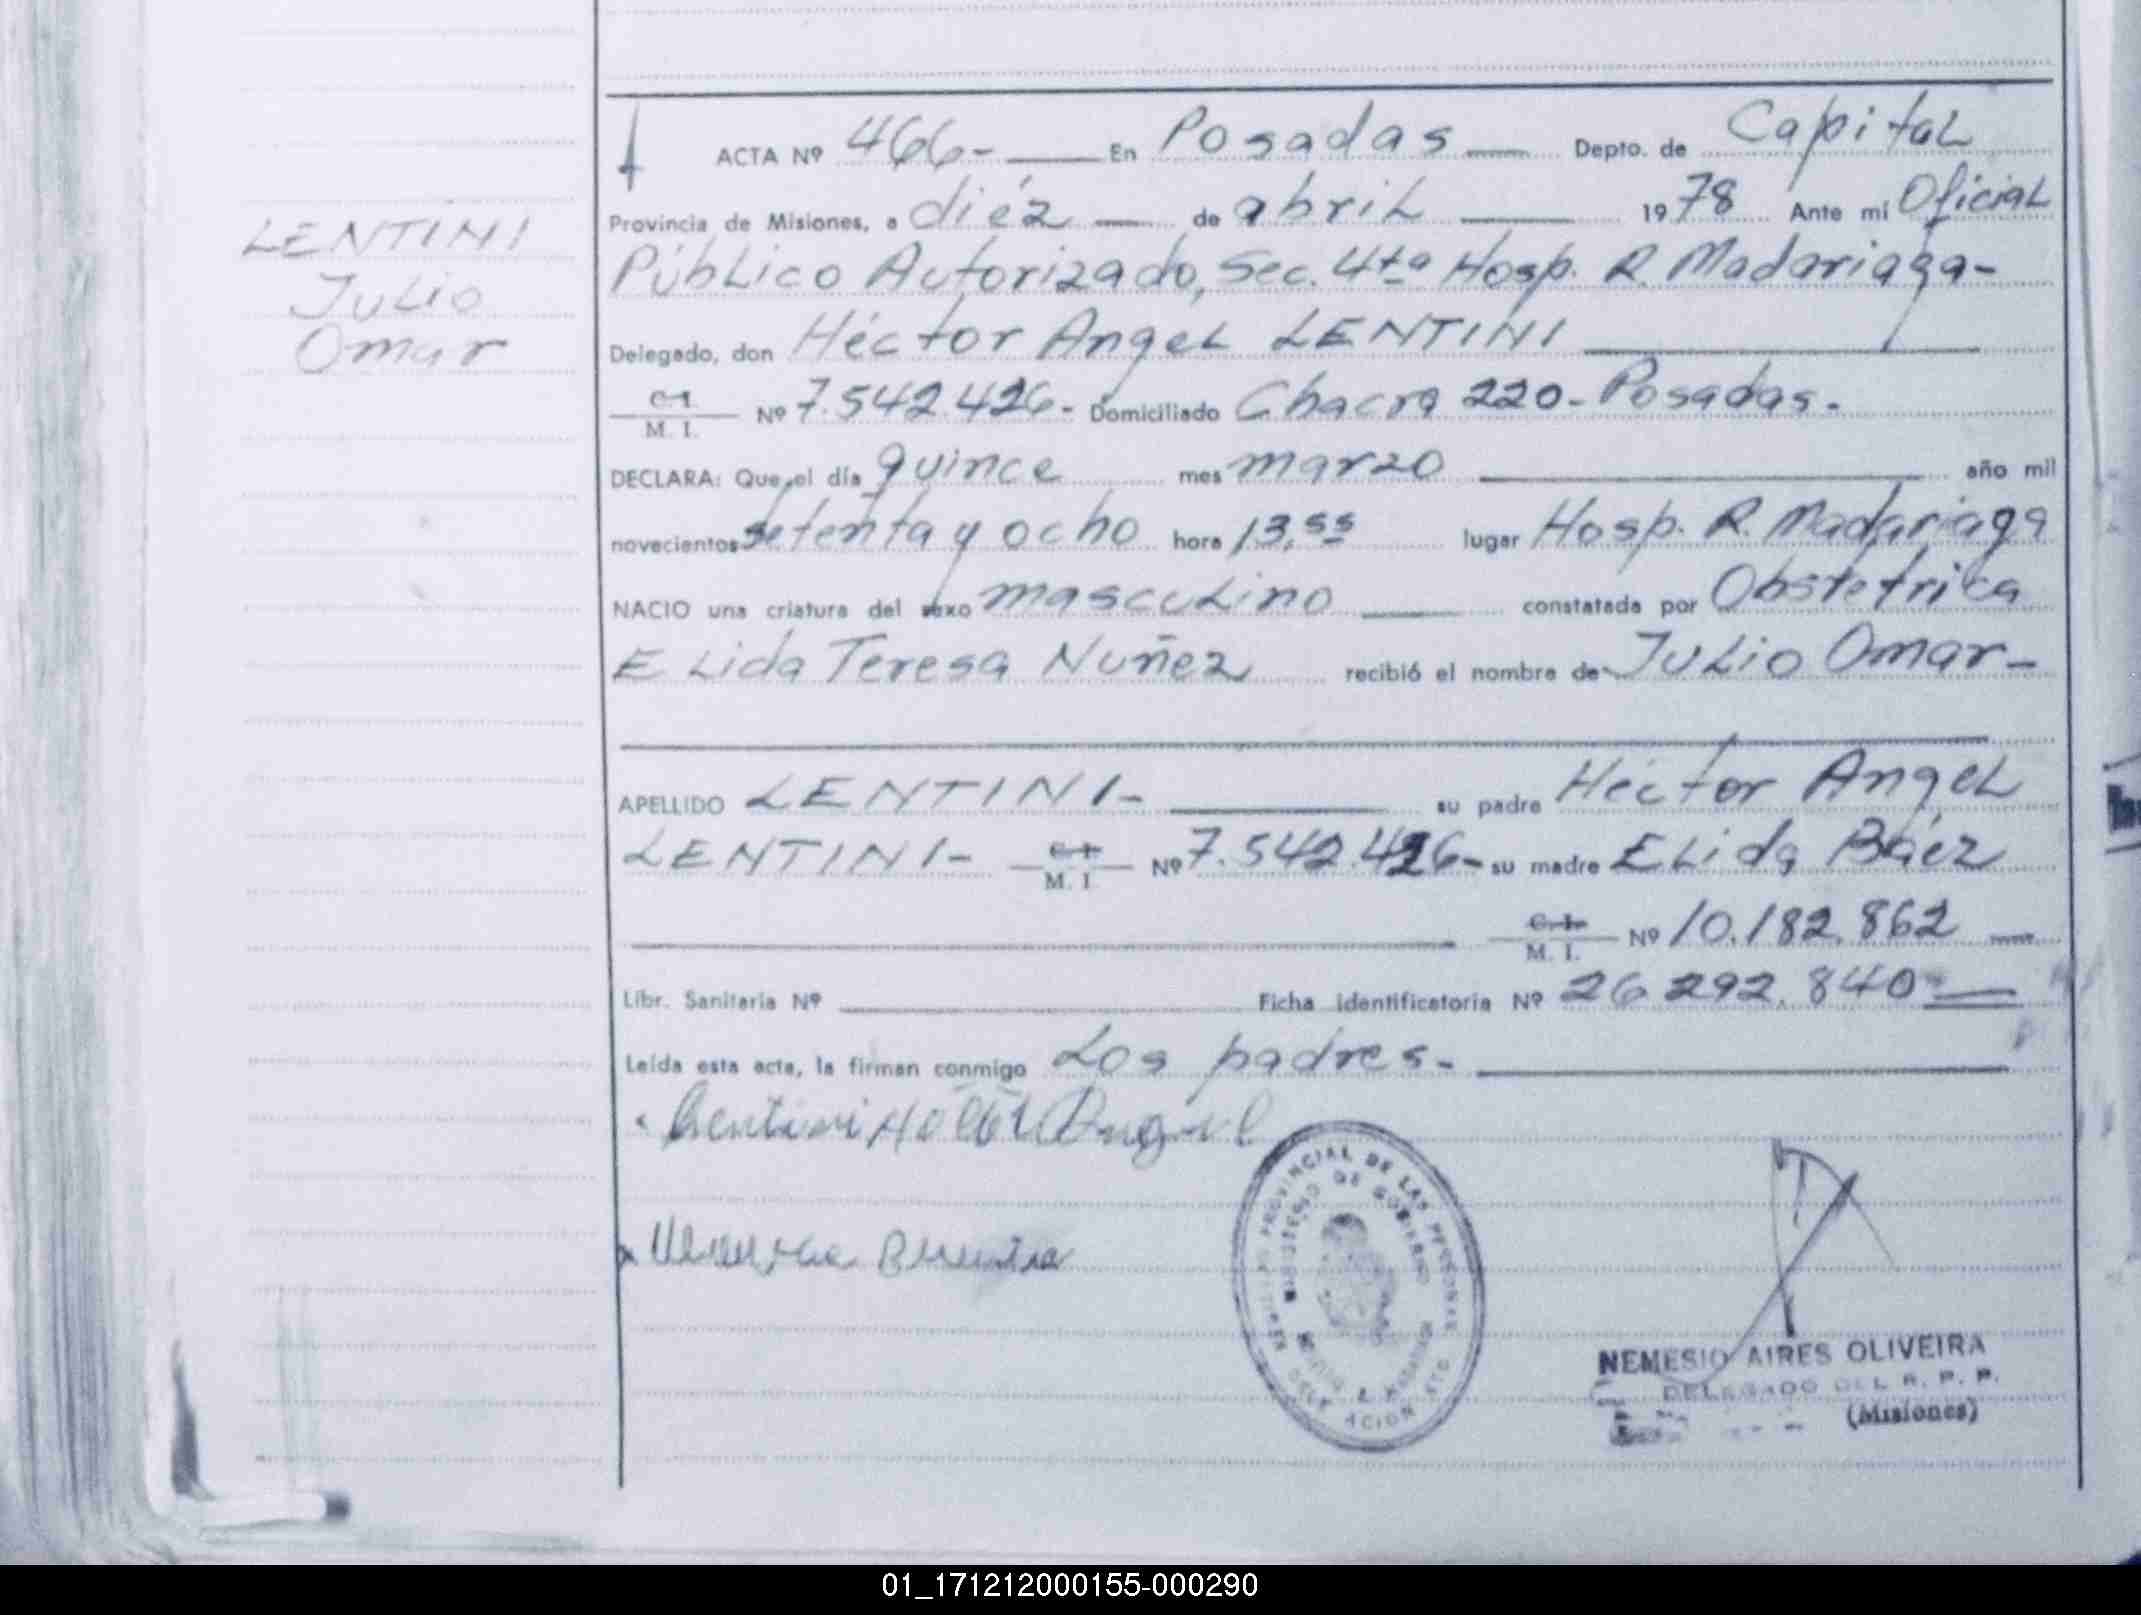 ACTA Nº 466- En Posadas Depto. de Capital
Provincia de Misiones, a diéz de abril 1978 Ante mi Oficial
Público Autorizado, Sec. 4ta Hosp. R. Madariaga-
Delegado, don Héctor Angel LENTINI
C.I. M. I. Nº 7.542.426- Domiciliado Chacra 220- Posadas.
DECLARA: Que el día quince mes marzo año mil
novecientos setenta y ocho hora 13,55 lugar Hosp. R. Madariaga
NACIO una criatura del sexo masculino constatada por Obstetrica
Elida Teresa Nuñez recibió el nombre de Julio Omar-
APELLIDO LENTINI- su padre Héctor Angel
LENTINI- C.I. M. I. Nº 7.542.426- su madre Elida Báez
C.I. M. I. Nº 10.182.862
Libr. Sanitaria Nº Ficha identificatoria Nº 26.292.840
Leída esta acta, la firman conmigo Los padres-
LENTINI
Julio
Omar
Lentini Angel
PROVINCIAL DE LAS PERSONAS
MINISTERIO DE GOBIERNO
DELEGACION
NEMESIO AIRES OLIVEIRA
DELEGADO DEL R. P. P.
(Misiones)
01_171212000155-000290